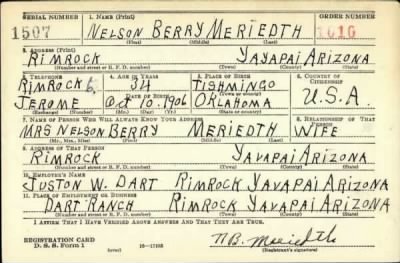 SERIAL NUMBER 1. NAME (Print) ORDER NUMBER
1507 NELSON BERRY MERIEDTH 1616
(First) (Middle) (Last)
2. ADDRESS (Print)
RIMROCK YAVAPAI ARIZONA
(Number and street or R. F. D. number) (Town) (County) (State)
3. TELEPHONE 4. AGE IN YEARS 5. PLACE OF BIRTH 6. COUNTRY OF CITIZENSHIP
RIMROCK 6, 34 TISHMINGO
DATE OF BIRTH (Town or county)
JEROME Oct 10 1906 OKLAHOMA U.S.A.
(Exchange) (Number) (Mo.) (Day) (Yr.) (State or country)
7. NAME OF PERSON WHO WILL ALWAYS KNOW YOUR ADDRESS 8. RELATIONSHIP OF THAT PERSON
MRS NELSON BERRY MERIEDTH WIFE
(Mr., Mrs., Miss) (First) (Middle) (Last)
9. ADDRESS OF THAT PERSON
RIMROCK YAVAPAI ARIZONA
(Number and street or R. F. D. number) (Town) (County) (State)
10. EMPLOYER'S NAME
JUSTON W. DART RIMROCK YAVAPAI ARIZONA
11. PLACE OF EMPLOYMENT OR BUSINESS
DART RANCH RIMROCK YAVAPAI ARIZONA
(Number and street or R. F. D. number) (Town) (County) (State)
I AFFIRM THAT I HAVE VERIFIED ABOVE ANSWERS AND THAT THEY ARE TRUE.
REGISTRATION CARD
D. S. S. Form 1 16—17105 N.B. Meriedth
(Registrant's signature)